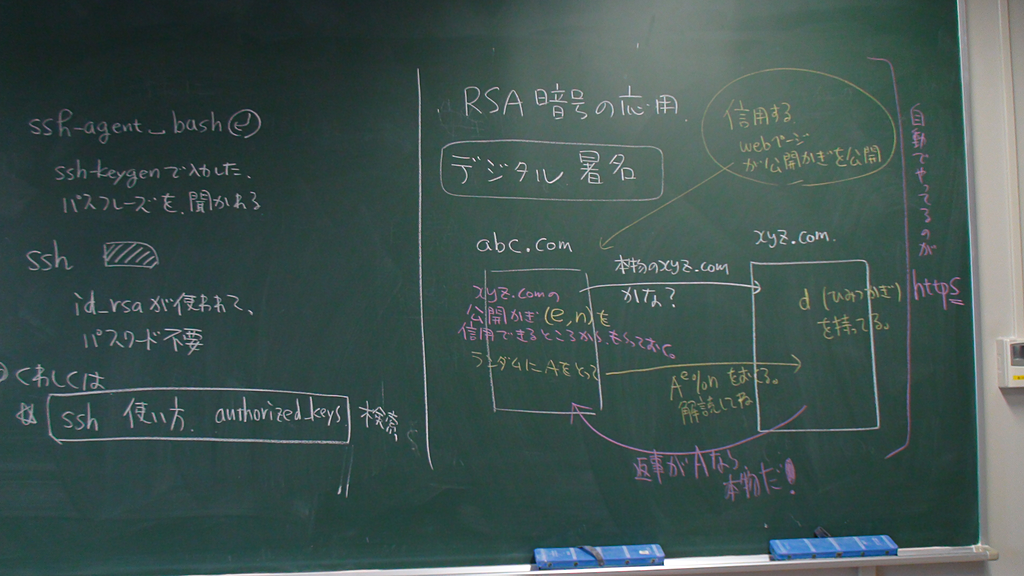 ssh-agent bash
ssh-keygenで入力した、
パスフレーズを、聞かれる
ssh
id_rsaが使われて、
パスワード不要
くわしくは
ssh 使い方 authorized_keys 検索
RSA暗号の応用
デジタル署名
信用する
webページ
が公開かぎを公開
abc.com
xyz.com
本物のxyz.com
かな?
xyz.comの
公開かぎ(e,n)を
信用できるところからもらっておく。
ランダムにAをとって
A^e%nをおくる。
解読してね
d (ひみつかぎ)
を持ってる。
返事がAなら
本物だ!
自動でやってるのが
https